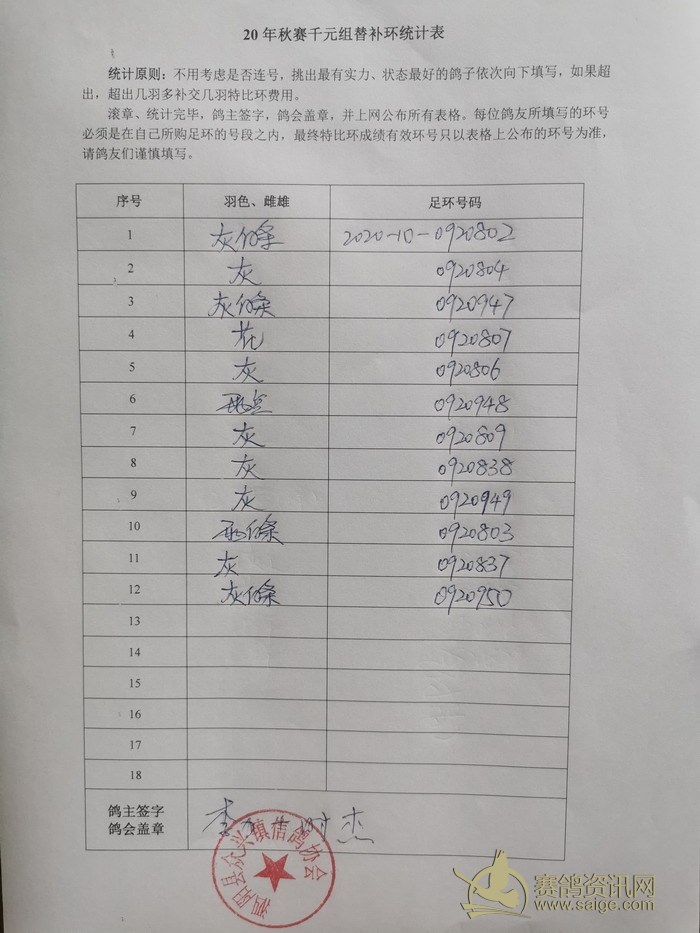 20 年秋赛千元组替补环统计表
统计原则：不用考虑是否连号，挑出最有实力、状态最好的鸽子依次向下填写，如果超
出，超出几羽多补交几羽特比环费用。
滚章、统计完毕，鸽主签字，鸽会盖章，并上网公布所有表格。每位鸽友所填写的环号
必须是在自己所购足环的号段之内，最终特比环成绩有效环号只以表格上公布的环号为准，
请鸽友们谨慎填写。
序号 羽色、雌雄 足环号码
1 灰條 2020-10-0920802
2 灰 0920804
3 灰條 0920947
4 花 0920807
5 灰 0920806
6 0920948
7 灰 0920809
8 灰 0920838
9 灰 0920949
10 0920803
11 灰 0920837
12 灰條 0920950
13
14
15
16
17
18
鸽主签字
鸽会盖章
李 树杰
泗阳县众兴镇信鸽协会
赛鸽资讯网
www.saige.com